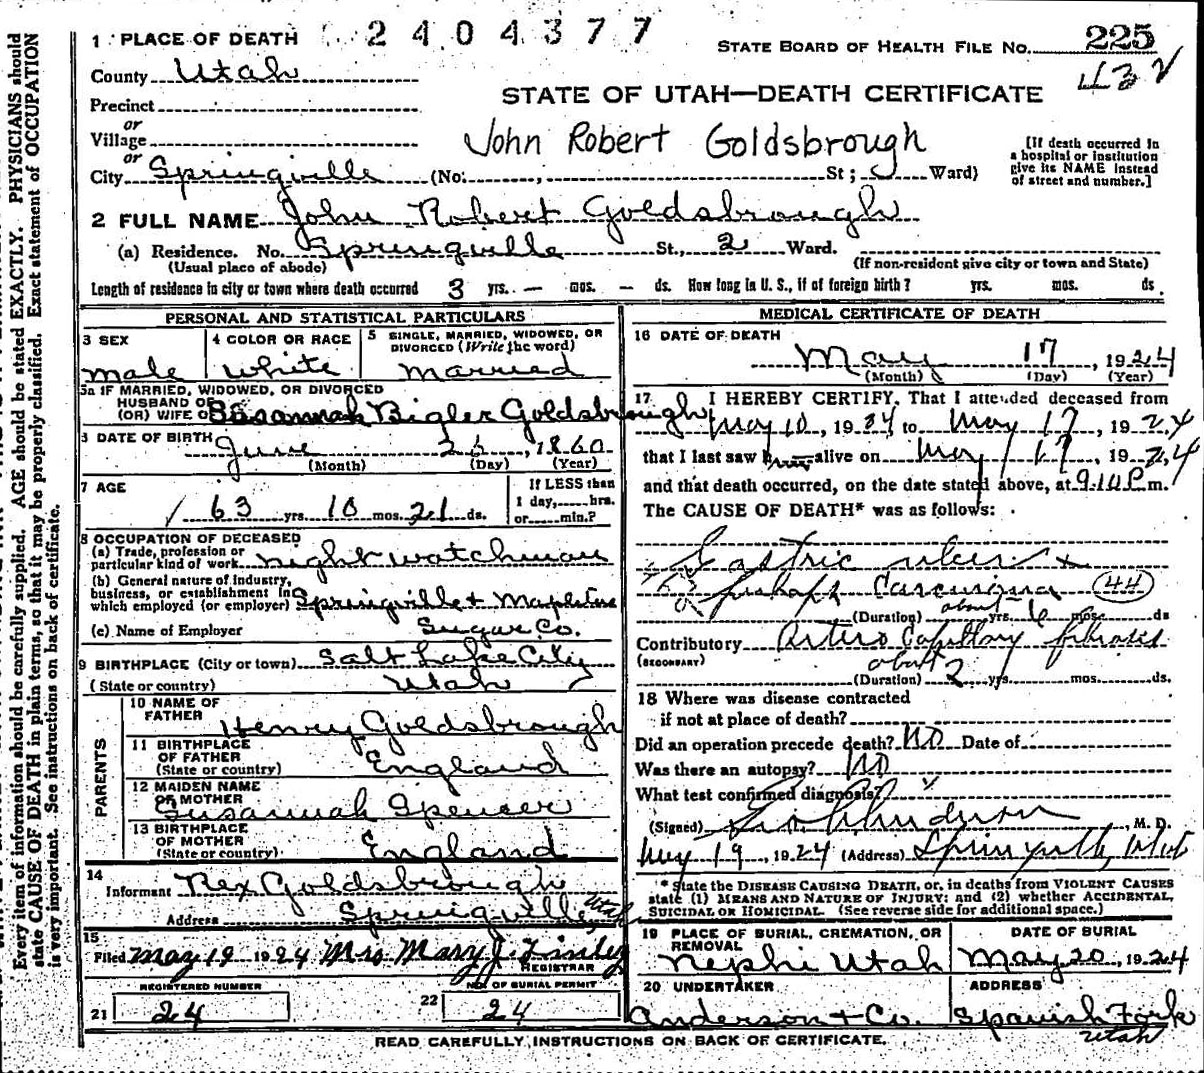 2404377
1 PLACE OF DEATH
STATE BOARD OF HEALTH FILE NO. 225
432
County Utah
STATE OF UTAH—DEATH CERTIFICATE
Precinct
or
Village
John Robert Goldsbrough
or
City Springville (No. St; Ward)
[If death occurred in
a hospital or institution
give its NAME instead
of street and number.]
2 FULL NAME John Robert Goldsbrough
(a) Residence. No. Springville St., 2 Ward.
(Usual place of abode)
(If non-resident give city or town and State)
Length of residence in city or town where death occurred 3 yrs. — mos. — ds. How long in U. S., if of foreign birth? yrs. mos. ds.
PERSONAL AND STATISTICAL PARTICULARS
3 SEX
male
4 COLOR OR RACE
white
5 SINGLE, MARRIED, WIDOWED, OR
DIVORCED (Write the word)
married
5a IF MARRIED, WIDOWED, OR DIVORCED
HUSBAND OF
(OR) WIFE OF Susannah Bigler Goldsbrough
6 DATE OF BIRTH June 26, 1860
(Month) (Day) (Year)
7 AGE
63 yrs. 10 mos. 21 ds.
If LESS than
1 day, hrs.
or min.?
8 OCCUPATION OF DECEASED
(a) Trade, profession or
particular kind of work night watchman
(b) General nature of industry,
business, or establishment in
which employed (or employer) Springville + Mapleton
(c) Name of Employer Sugar Co.
9 BIRTHPLACE (City or town) Salt Lake City
(State or country) Utah
PARENTS
10 NAME OF
FATHER Henry Goldsbrough
11 BIRTHPLACE
OF FATHER
(State or country) England
12 MAIDEN NAME
OF MOTHER
Susannah Spencer
13 BIRTHPLACE
OF MOTHER
(State or country) England
14
Informant Rex Goldsbrough
Address Springville, Utah
15
Filed May 19 1924 Mrs Mary J.
REGISTRAR
REGISTERED NUMBER
21 24
NO. OF BURIAL PERMIT
22 24
MEDICAL CERTIFICATE OF DEATH
16 DATE OF DEATH
May 17, 1924
(Month) (Day) (Year)
17 I HEREBY CERTIFY, That I attended deceased from
May 10, 1924, to May 17, 1924
that I last saw him alive on May 17, 1924
and that death occurred, on the date stated above, at 9.10 P.m.
The CAUSE OF DEATH* was as follows:
Gastric ulcers +
perhaps Carcinoma 44
(Duration) about yrs. 6 mos. ds
Contributory Arterio Capillary fibrosis
(SECONDARY)
(Duration) about 2 yrs. mos. ds.
18 Where was disease contracted
if not at place of death?
Did an operation precede death? No Date of
Was there an autopsy? No
What test confirmed diagnosis?
(Signed) M. D.
May 19, 1924 (Address) Springville, Utah
* State the DISEASE CAUSING DEATH, or, in deaths from VIOLENT CAUSES
state (1) MEANS AND NATURE OF INJURY; and (2) whether ACCIDENTAL,
SUICIDAL OR HOMICIDAL. (See reverse side for additional space.)
19 PLACE OF BURIAL, CREMATION, OR
REMOVAL
Nephi Utah
DATE OF BURIAL
May 20, 1924
20 UNDERTAKER
Anderson + Co.
ADDRESS
Spanish Fork
Utah
READ CAREFULLY, INSTRUCTIONS ON BACK OF CERTIFICATE.
Every item of information should be carefully supplied. AGE should be stated EXACTLY. PHYSICIANS should
state CAUSE OF DEATH in plain terms, so that it may be properly classified. Exact statement of OCCUPATION
is very important. See instructions on back of certificate.